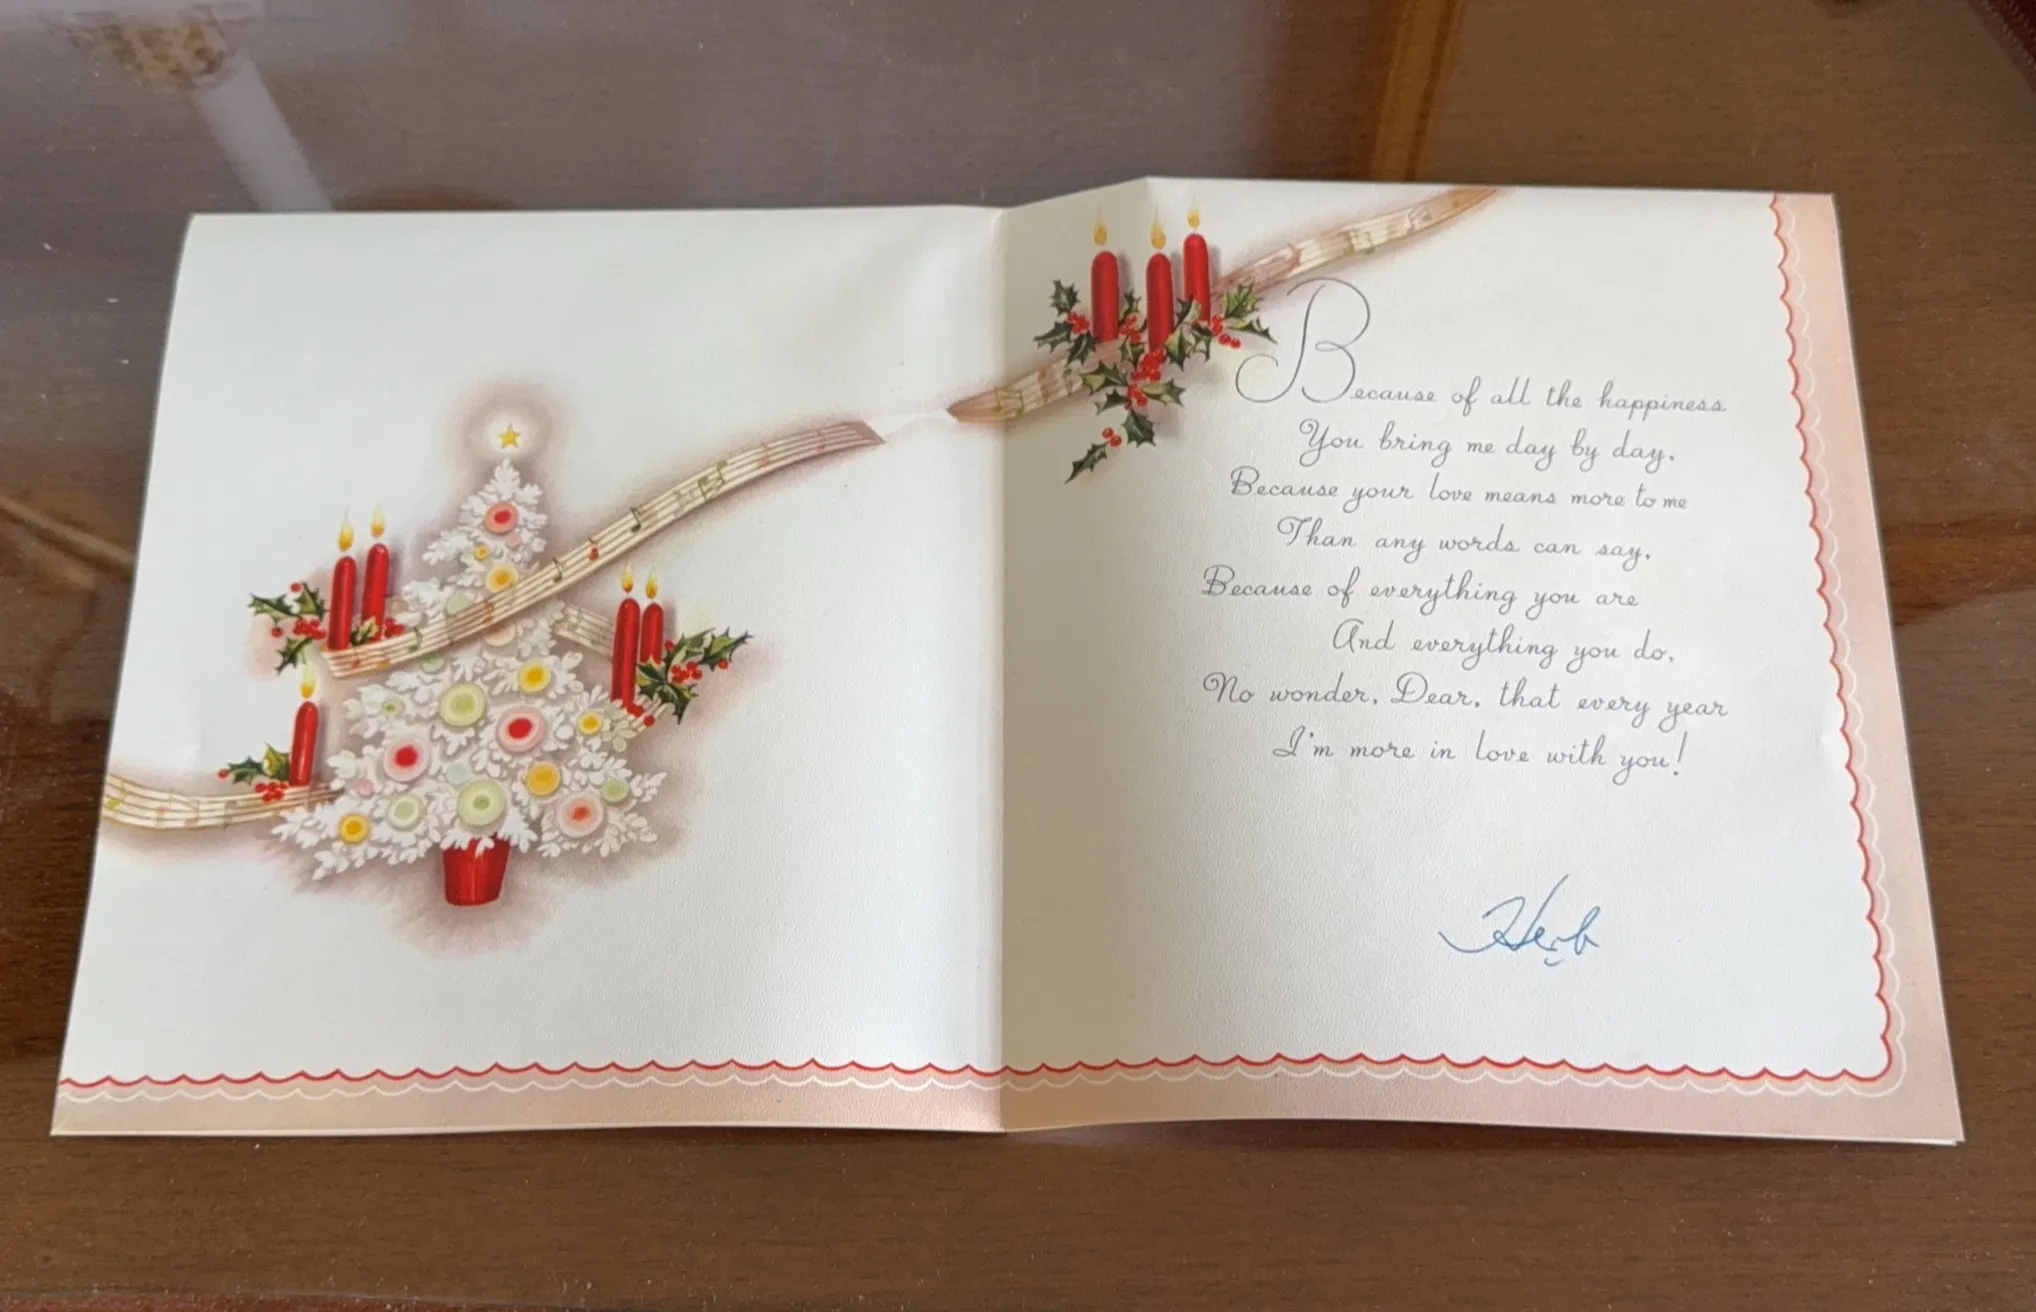 Because of all the happiness
You bring me day by day,
Because your love means more to me
Than any words can say,
Because of everything you are
And everything you do,
No wonder, Dear, that every year
I'm more in love with you!
Herb